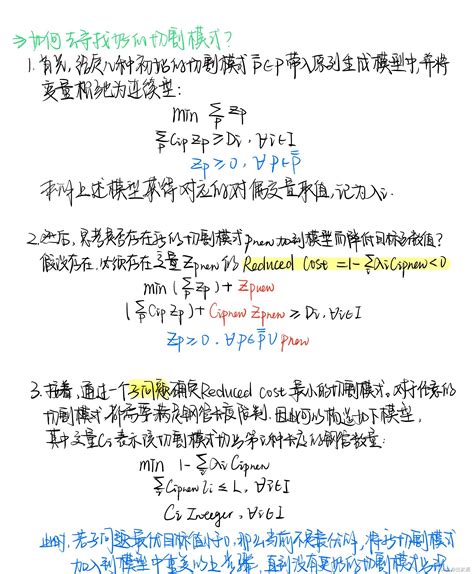 ⇒如何去寻找好的切割模式?
1. 首先,给定几种初始的切割模式 p̄∈P 带入原列生成模型中,并将
变量松弛为连续型:
min Σ_p Zp
Σ_p Cip Zp ≥ Di, ∀i∈I
Zp ≥ 0, ∀p∈P̄
求解上述模型获得对应的对偶变量取值,记为λi.
2. 然后,思考是否存在新的切割模式 Pnew 加到模型而降低目标函数值?
假设存在,必须存在变量 Zpnew 的 Reduced Cost = 1-Σ_i λi Cipnew < 0
min (Σ_p Zp) + Zpnew
(Σ_p Cip Zp) + Cipnew Zpnew ≥ Di, ∀i∈I
Zp ≥ 0, ∀p∈P̄∪Pnew
3. 接着,通过一个子问题确定Reduced Cost 最小的切割模式。对于任意的
切割模式,都需要满足钢管长度限制,因此可以构造如下模型,
其中变量Ci表示该切割模式切出第i种长度的钢管数量:
min 1-Σ_i λi Cipnew
Σ_i Cipnew li ≤ L, ∀i∈I
Ci Integer, ∀i∈I
此时,若子问题最优目标值小于0,那么当前不是最优解,将新切割模式
加入到模型中重复以上步骤,直到没有更好的切割模式出现